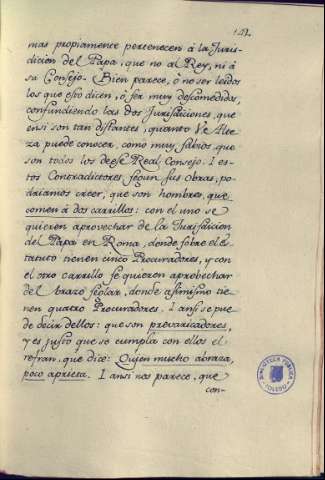 151.
mas propiamente pertenecen á la Juris-
dicion del Papa, que no al Rey, ni á
su Consejo. Bien parece, ó no ser leidos
los que esto dicen, ó ser muy descomedidos,
confundiendo las dos Jurisdiciones, que
en sí son tan distantes, quanto Ve Alte
za puede conocer, como muy sabios que
son todos los de ese Real Consejo. I es-
tos Contradictores, segun sus obras, po-
driamos creer, que son hombres, que
comen á dos carrillos: con el uno se
quieren aprovechar de la Jurisdicion
del Papa en Roma, donde sobre el Es
tatuto tienen cinco Procuradores, y con
el otro carrillo se quieren aprobechar
del brazo seglar, donde asimismo tie-
nen quatro Procuradores. I ansi se pue-
de decir dellos: que son prevaricadores,
y es justo que se cumpla con ellos el
refran, que dice: Quien mucho abraza,
poco aprieta. I ansi nos parece, que
con-
BIBLIOTECA PUBLICA
TOLEDO